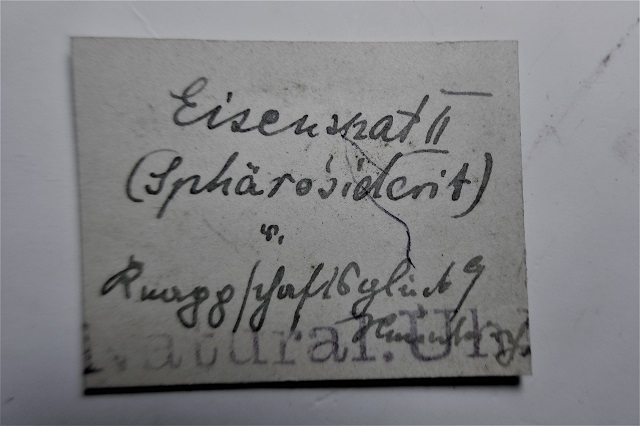 Eisenspat II
(Sphärosiderit)
v.
Knappschaftsglück
Natural.Un